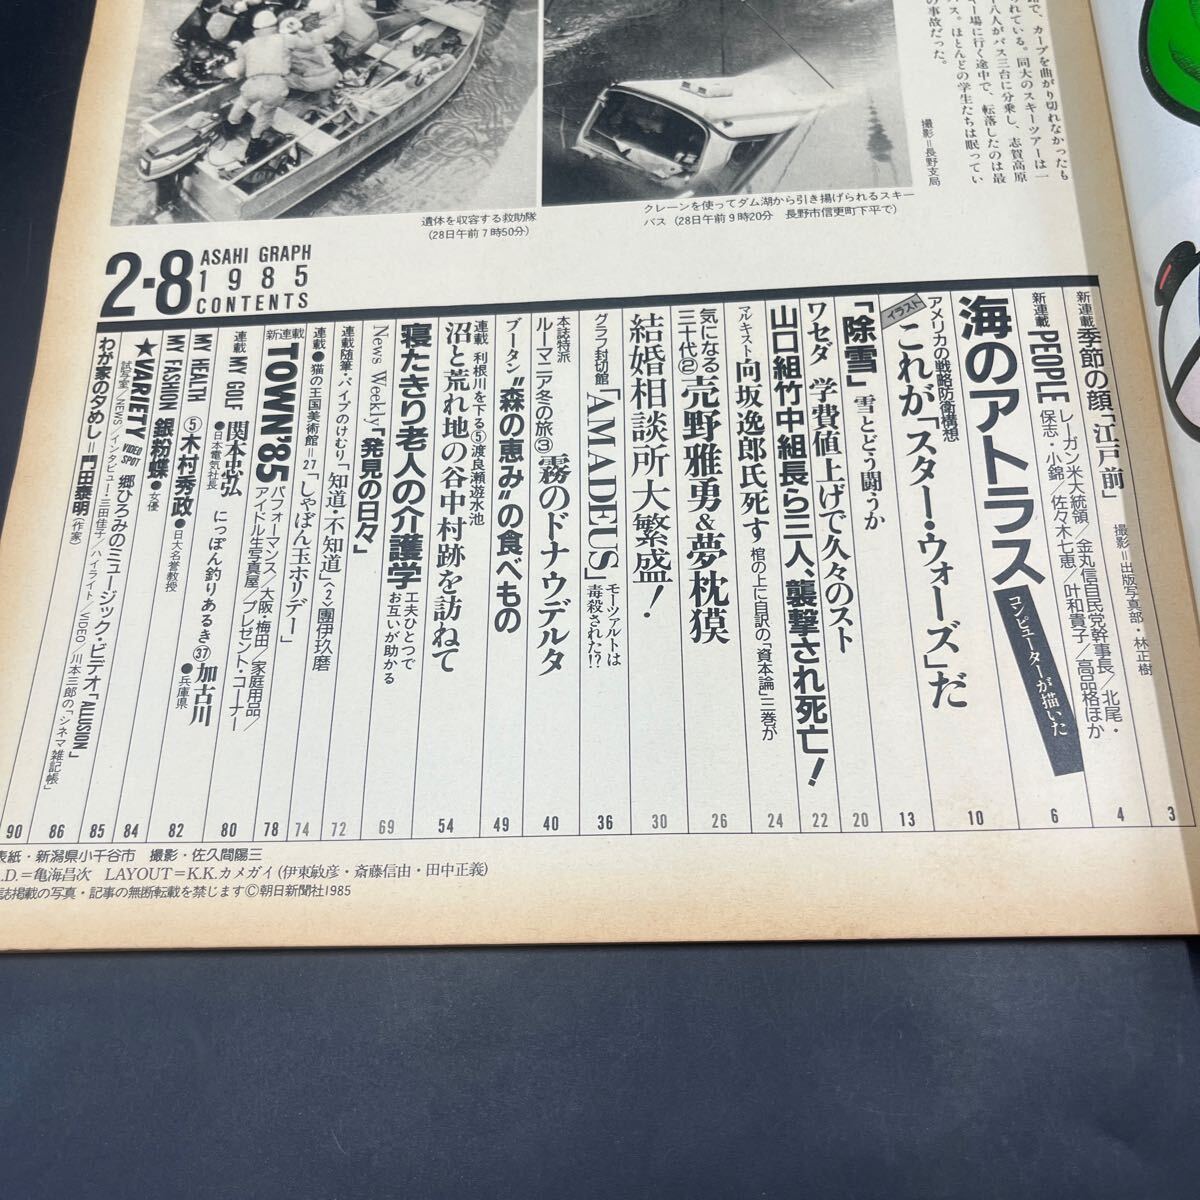 路で、カーブを曲がり切れなかったも
られている。同大のスキーツアーは一
十八人がバス三台に分乗し、志賀高原
キー場に行く途中で、転落したのは最
バス。ほとんどの学生たちは眠ってい
の事故だった。
撮影=長野支局
遺体を収容する救助隊
(28日午前7時50分)
クレーンを使ってダム湖から引き揚げられるスキー
バス(28日午前9時20分 長野市信更町下平で)
2・8
ASAHI GRAPH
1985
CONTENTS
新連載 季節の顔「江戸前」 撮影=出版写真部・林正樹 3
新連載 PEOPLE レーガン米大統領/金丸信自民党幹事長/北尾・
保志・小錦/佐々木七恵/叶和貴子/高品格ほか 4
海のアトラス コンピューターが描いた 6
アメリカの戦略防衛構想
イラスト これが「スター・ウォーズ」だ 10
「除雪」雪とどう闘うか 13
ワセダ 学費値上げで久々のスト 20
山口組竹中組長ら三人、襲撃され死亡! 22
マルキスト 向坂逸郎氏死す 棺の上に自訳の「資本論」三巻が 24
気になる
三十代② 売野雅勇&夢枕獏 26
結婚相談所大繁盛! 30
グラフ封切館「AMADEUS」 モーツァルトは
毒殺された!? 36
本誌特派
ルーマニア冬の旅③ 霧のドナウデルタ 40
ブータン“森の恵み”の食べもの 49
連載 利根川を下る⑤渡良瀬遊水池
沼と荒れ地の谷中村跡を訪ねて 54
寝たきり老人の介護学 工夫ひとつで
お互いが助かる
News Weekly「発見の日々」 69
連載随筆・パイプのけむり「知道・不知道」〈2〉團伊玖磨 72
連載●猫の王国美術館=27「しゃぼん玉ホリデー」 74
新連載 TOWN'85 パフォーマンス/大阪・梅田/家庭用品/
アイドル生写真屋/プレゼント・コーナー 78
連載 MY GOLF 関本忠弘 ●日本電気社長 にっぽん釣りあるき㊲ 加古川 ●兵庫県 80
MY HEALTH ⑤木村秀政 ●日大名誉教授
MY FASHION 銀粉蝶 ●女優 82
★VARIETY VIDEO SPOT 郷ひろみのミュージック・ビデオ「ALLUSION」 84
試写室/NEWS/インタビュー・三田佳子/ハイライト/VIDEO/川本三郎の「シネマ雑記帳」 85
86
わが家の夕めし=門田泰明(作家) 90
表紙・新潟県小千谷市 撮影・佐久間陽三
.D.=亀海昌次 LAYOUT=K.K.カメガイ(伊東敏彦・斎藤信由・田中正義)
誌掲載の写真・記事の無断転載を禁じます©朝日新聞社1985